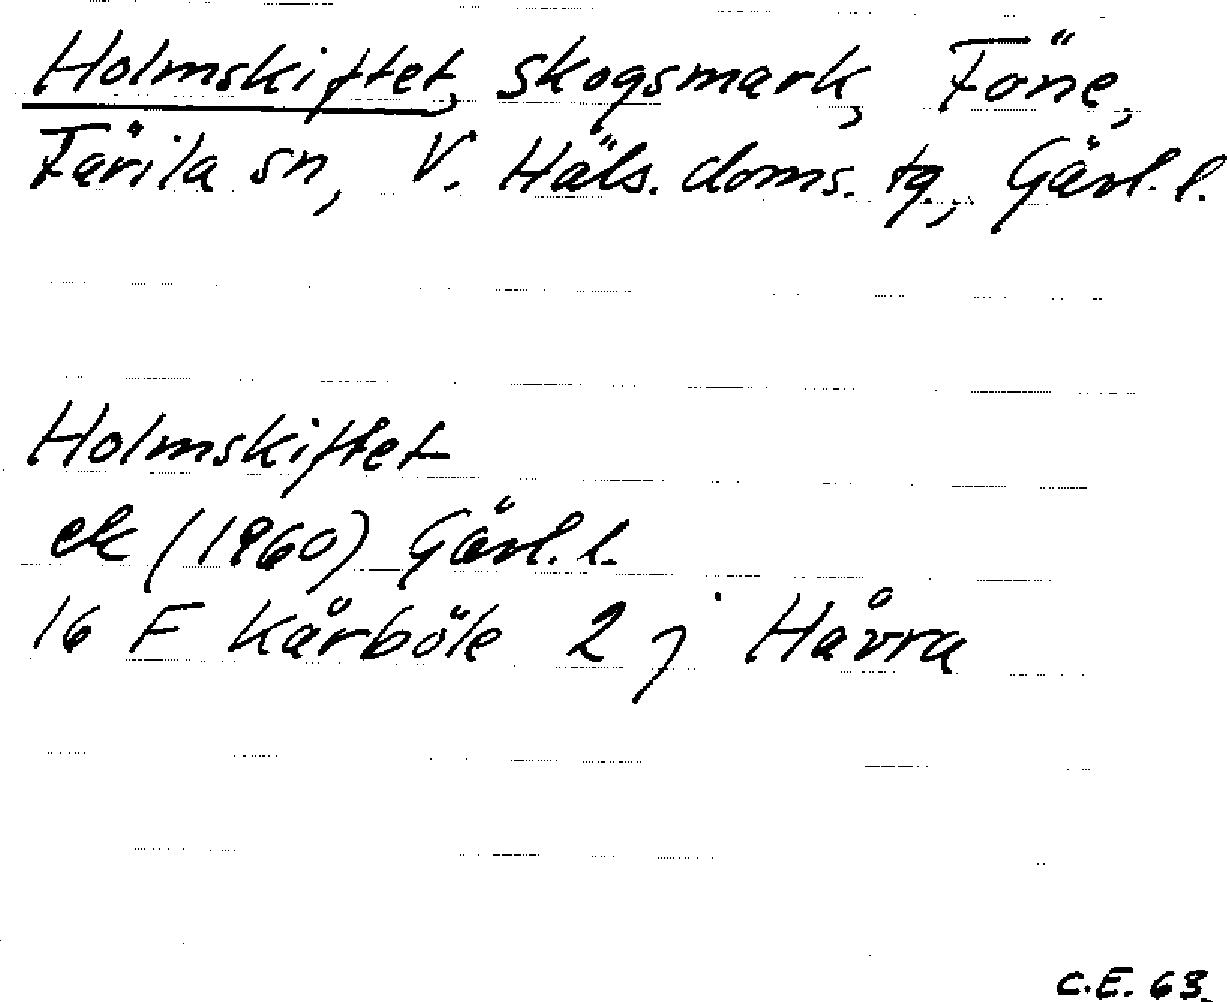 Holmskiftet, skogsmark, Föne,
Färila sn, V. Häls. doms. tg., Gävl. l.
Holmskiftet
ek (1960) Gävl. l.
16 F Kårböle 2 j Håvra
C.E. 63.